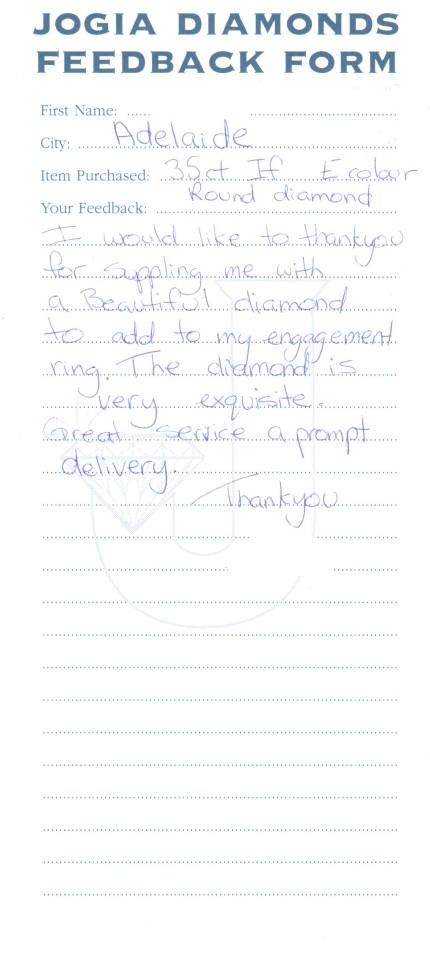 JOGIA DIAMONDS
FEEDBACK FORM
First Name:
City: Adelaide
Item Purchased: .35ct If E colour
Round diamond
Your Feedback:
I would like to thankyou
for suppling me with
a Beautiful diamond
to add to my engagement
ring. The diamond is
very exquisite.
Great service a prompt
delivery.
Thankyou